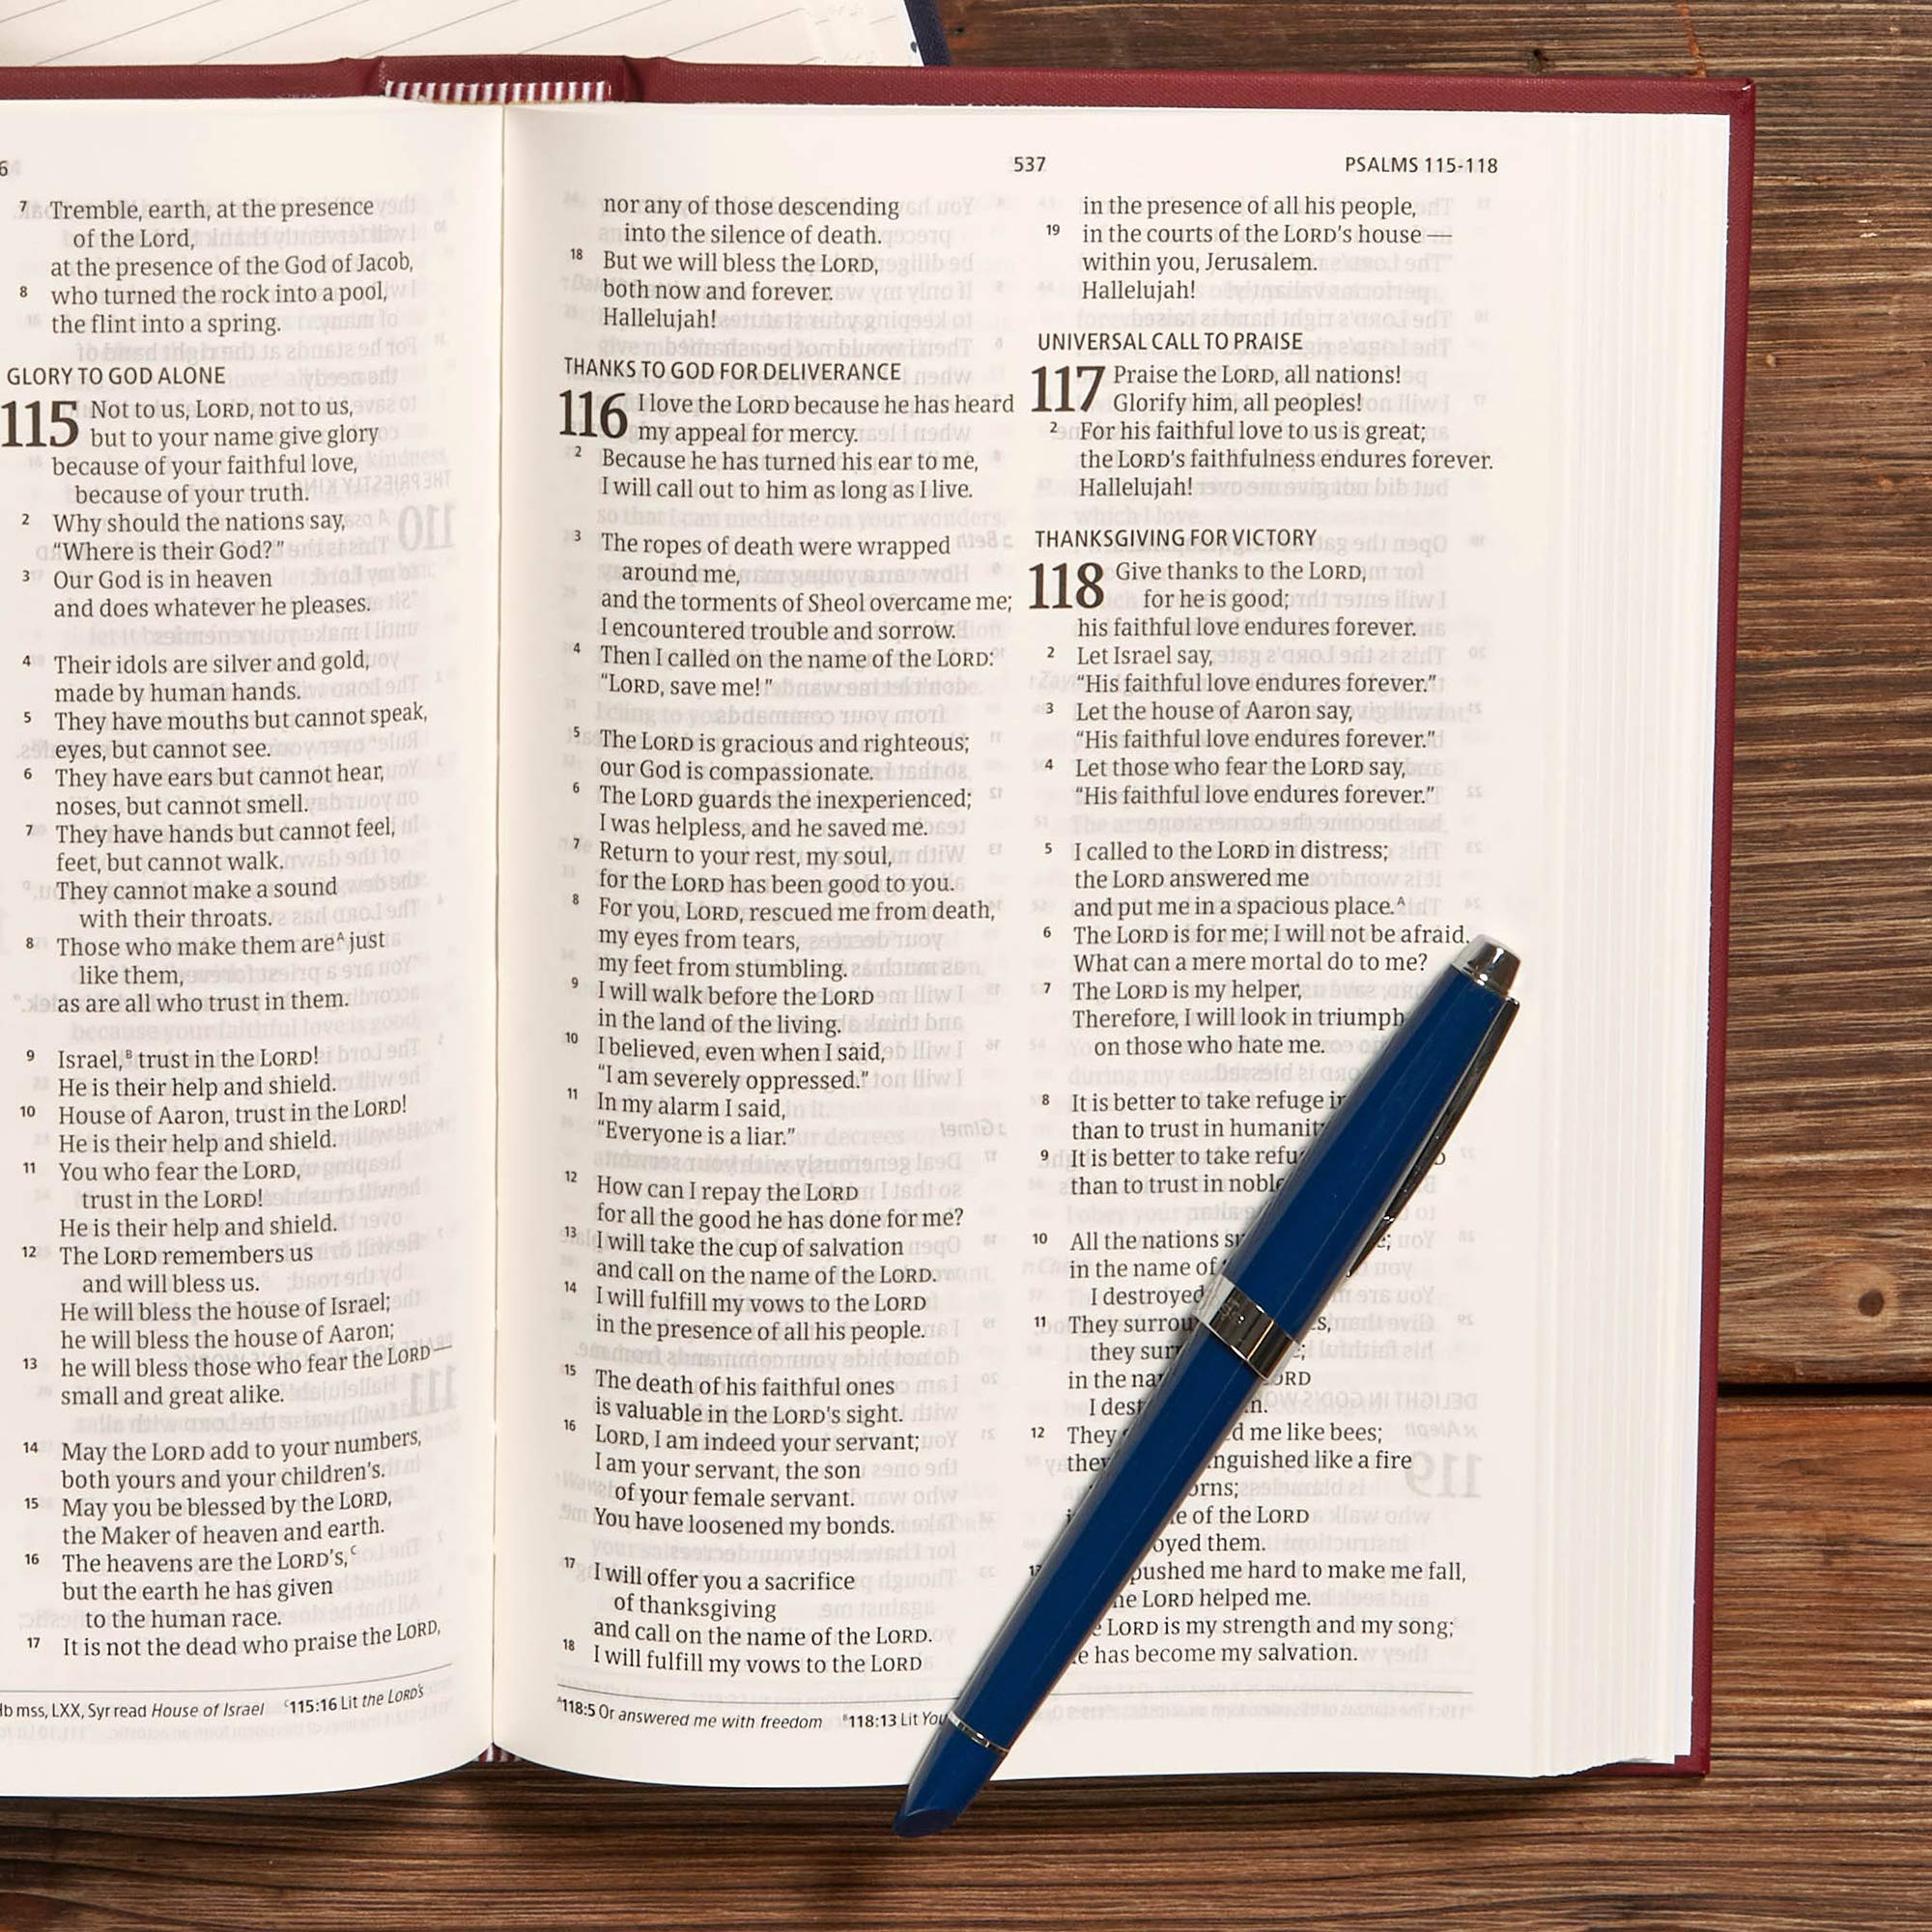 6
7 Tremble, earth, at the presence
of the Lord,
at the presence of the God of Jacob,
8 who turned the rock into a pool,
the flint into a spring.
GLORY TO GOD ALONE
115 Not to us, LORD, not to us,
but to your name give glory
because of your faithful love,
because of your truth.
2 Why should the nations say,
“Where is their God?”
3 Our God is in heaven
and does whatever he pleases.
4 Their idols are silver and gold,
made by human hands.
5 They have mouths but cannot speak,
eyes, but cannot see.
6 They have ears but cannot hear,
noses, but cannot smell.
7 They have hands but cannot feel,
feet, but cannot walk.
They cannot make a sound
with their throats.
8 Those who make them are^A just
like them,
as are all who trust in them.
9 Israel,^B trust in the LORD!
He is their help and shield.
10 House of Aaron, trust in the LORD!
He is their help and shield.
11 You who fear the LORD,
trust in the LORD!
He is their help and shield.
12 The LORD remembers us
and will bless us.
He will bless the house of Israel;
he will bless the house of Aaron;
13 he will bless those who fear the LORD —
small and great alike.
14 May the LORD add to your numbers,
both yours and your children’s.
15 May you be blessed by the LORD,
the Maker of heaven and earth.
16 The heavens are the LORD’s,^C
but the earth he has given
to the human race.
17 It is not the dead who praise the LORD,
mss, LXX, Syr read House of Israel ^C115:16 Lit the LORD’s
537 PSALMS 115-118
nor any of those descending
into the silence of death.
18 But we will bless the LORD,
both now and forever.
Hallelujah!
THANKS TO GOD FOR DELIVERANCE
116 I love the LORD because he has heard
my appeal for mercy.
2 Because he has turned his ear to me,
I will call out to him as long as I live.
3 The ropes of death were wrapped
around me,
and the torments of Sheol overcame me;
I encountered trouble and sorrow.
4 Then I called on the name of the LORD:
“LORD, save me!”
5 The LORD is gracious and righteous;
our God is compassionate.
6 The LORD guards the inexperienced;
I was helpless, and he saved me.
7 Return to your rest, my soul,
for the LORD has been good to you.
8 For you, LORD, rescued me from death,
my eyes from tears,
my feet from stumbling.
9 I will walk before the LORD
in the land of the living.
10 I believed, even when I said,
“I am severely oppressed.”
11 In my alarm I said,
“Everyone is a liar.”
12 How can I repay the LORD
for all the good he has done for me?
13 I will take the cup of salvation
and call on the name of the LORD.
14 I will fulfill my vows to the LORD
in the presence of all his people.
15 The death of his faithful ones
is valuable in the LORD’s sight.
16 LORD, I am indeed your servant;
I am your servant, the son
of your female servant.
You have loosened my bonds.
17 I will offer you a sacrifice
of thanksgiving
and call on the name of the LORD.
18 I will fulfill my vows to the LORD
in the presence of all his people,
19 in the courts of the LORD’s house —
within you, Jerusalem.
Hallelujah!
UNIVERSAL CALL TO PRAISE
117 Praise the LORD, all nations!
Glorify him, all peoples!
2 For his faithful love to us is great;
the LORD’s faithfulness endures forever.
Hallelujah!
THANKSGIVING FOR VICTORY
118 Give thanks to the LORD,
for he is good;
his faithful love endures forever.
2 Let Israel say,
“His faithful love endures forever.”
3 Let the house of Aaron say,
“His faithful love endures forever.”
4 Let those who fear the LORD say,
“His faithful love endures forever.”
5 I called to the LORD in distress;
the LORD answered me
and put me in a spacious place.^A
6 The LORD is for me; I will not be afraid.
What can a mere mortal do to me?
7 The LORD is my helper,
Therefore, I will look in triumph
on those who hate me.
8 It is better to take refuge
than to trust in
9 It is better to take
than to trust in
10 All the nations
in the name of
I destroyed
11 They
they
in the
I
12 They me like bees;
they like a fire
of the LORD
them.
pushed me hard to make me fall,
LORD helped me.
LORD is my strength and my song;
has become my salvation.
^A118:5 Or answered me with freedom ^B118:13 Lit You